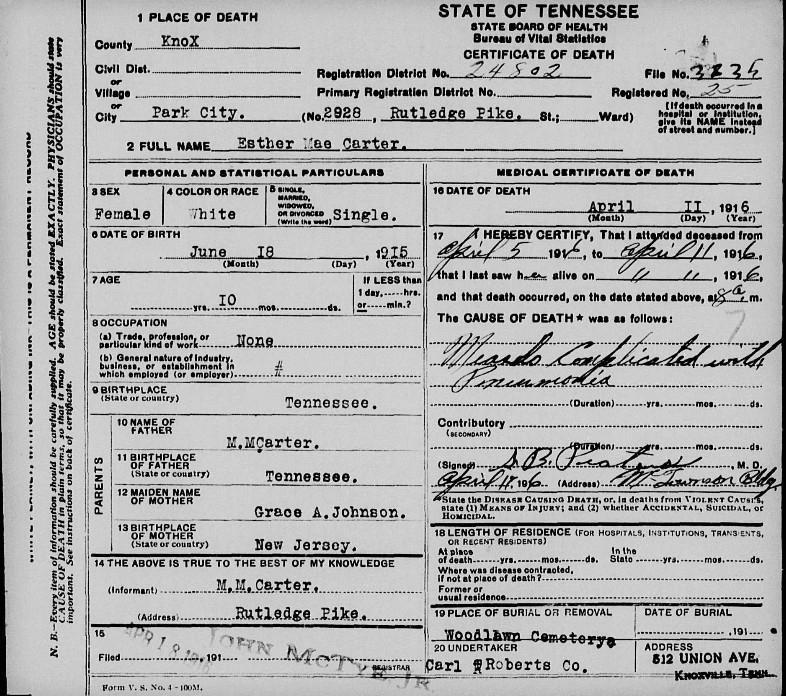 1 PLACE OF DEATH
County KnoX
Civil Dist.
or
Village
or
City Park City. (No. 2928, Rutledge Pike. St.; Ward)
2 FULL NAME Esther Mae Carter.
STATE OF TENNESSEE
STATE BOARD OF HEALTH
Bureau of Vital Statistics
CERTIFICATE OF DEATH
Registration District No. 24802 File No.
Primary Registration District No. Registered No. 25
[If death occurred in a
hospital or institution,
give its NAME instead
of street and number.]
PERSONAL AND STATISTICAL PARTICULARS
3 SEX
Female
4 COLOR OR RACE
White
5 SINGLE,
MARRIED,
WIDOWED,
OR DIVORCED
(Write the word) Single.
6 DATE OF BIRTH
June I8 , 1915
(Month) (Day) (Year)
7 AGE
yrs. IO mos. ds.
If LESS than
1 day,-----hrs.
or-----min.?
8 OCCUPATION
(a) Trade, profession, or
particular kind of work None
(b) General nature of industry,
business, or establishment in
which employed (or employer) #
9 BIRTHPLACE
(State or country)
Tennessee.
PARENTS
10 NAME OF
FATHER
M.MCarter.
11 BIRTHPLACE
OF FATHER
(State or country) Tennessee.
12 MAIDEN NAME
OF MOTHER
Grace A.Johnson.
13 BIRTHPLACE
OF MOTHER
(State or country) New Jersey.
14 THE ABOVE IS TRUE TO THE BEST OF MY KNOWLEDGE
(Informant) M.M.Carter.
(Address) Rutledge Pike.
15
Filed 191 JOHN McTYE JR
REGISTRAR
Form V. S. No. 4-100M.
MEDICAL CERTIFICATE OF DEATH
16 DATE OF DEATH
April II , 1916
(Month) (Day) (Year)
17 I HEREBY CERTIFY, That I attended deceased from
April 5 1916, to April 11, 1916,
that I last saw her alive on " ", 1916,
and that death occurred, on the date stated above, at 8 a m.
The CAUSE OF DEATH* was as follows:
7
Measels Complicated with
Pneumonia
(Duration) yrs. mos. ds.
Contributory
(SECONDARY)
(Duration) yrs. mos. ds.
(Signed) , M. D.
April 1916 (Address) Bldg
*State the DISEASE CAUSING DEATH, or, in deaths from VIOLENT CAUSES,
state (1) MEANS OF INJURY; and (2) whether ACCIDENTAL, SUICIDAL, or
HOMICIDAL.
18 LENGTH OF RESIDENCE (FOR HOSPITALS, INSTITUTIONS, TRANSIENTS,
OR RECENT RESIDENTS)
At place
of death yrs. mos. ds.
In the
State yrs. mos. ds.
Where was disease contracted,
if not at place of death?
Former or
usual residence
19 PLACE OF BURIAL OR REMOVAL
Woodlawn Cemeterye
DATE OF BURIAL
, 191
20 UNDERTAKER
Carl Roberts Co.
ADDRESS
512 UNION AVE.
KNOXVILLE, TENN.
N. B.—Every item of information should be carefully supplied. AGE should be stated EXACTLY. PHYSICIANS should state
CAUSE OF DEATH in plain terms, so that it may be properly classified. Exact statement of OCCUPATION is very
important. See instructions on back of certificate.